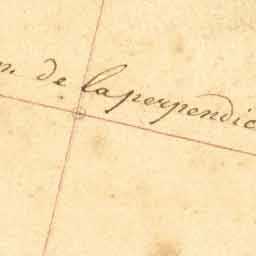 n. de la perpendic